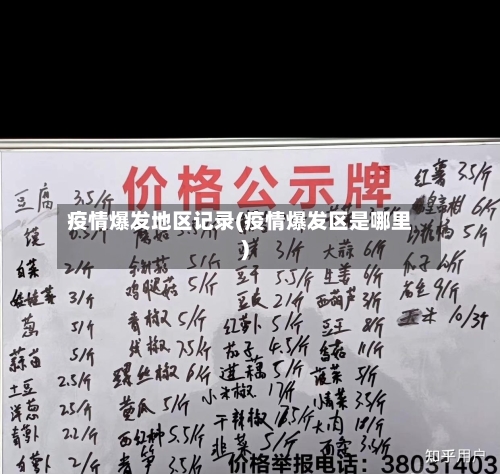 价格公示牌
疫情爆发地区记录(疫情爆发区是哪里
)
豆腐 3.5/斤
白菜 2/斤
娃娃菜 3/斤
葱 5/斤
蒜苗 5/斤
土豆 2.5/斤
洋葱 2.5/斤
青萝卜 2.2/斤
白萝卜 2/斤
鸡腿菇 5/斤
青椒 5/斤
线椒 7.5/斤
螺丝椒 6/斤
黄瓜 5/斤
西红柿 5.5/斤
青笋 3.5/斤
豆干 5.5/斤
豆皮 2/斤
红萝卜 5/斤
茄子 4.5/斤
莲藕 5/斤
小米椒 17/斤
干辣椒
韭菜 5/斤
大蒜 6/斤
生姜 6/斤
西葫芦 3/斤
豆王 8/斤
香菇 11/斤
菠菜 5/斤
小青菜 3.5/斤
大肉
红薯 3.5/斤
6/斤
5/斤
9/斤
玉米 10/3个
价格举报电话：38031403
知乎用户